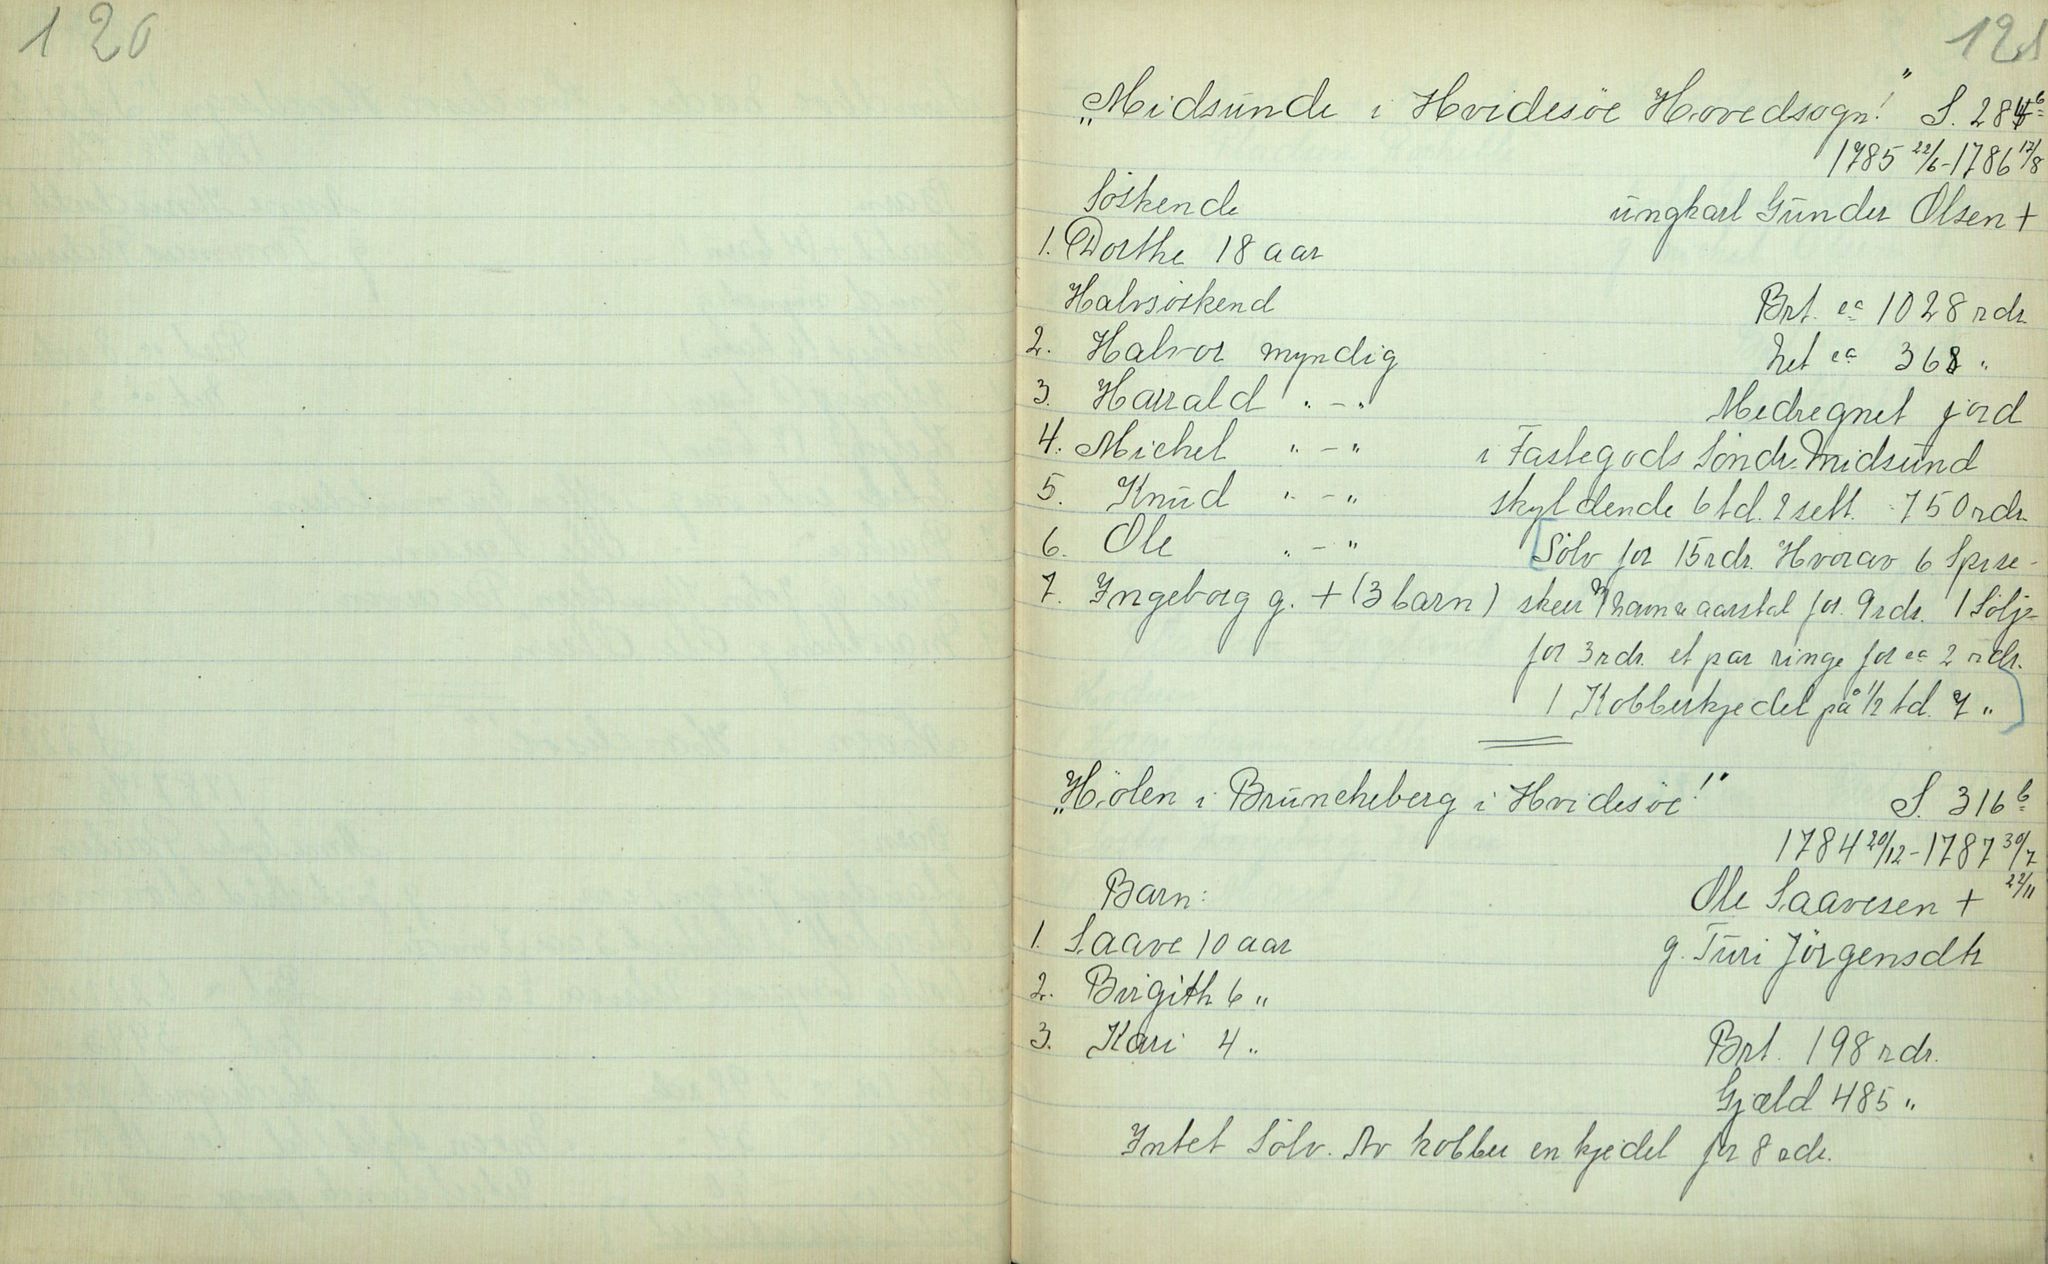 120
121
„Midsunde i Hvidesöe Hovedsogn!" S. 284 b
1785 22/6-1786 17/8
Söskende ungkarl Gunder Olsen +
1. Dorthe 18 aar
Halvsöskend Brt. ca 1028 rdr.
2. Halvor myndig Net ca 368 „
3. Harrald „ - „ Medregnet jord
4. Michel „ - „ i Fastegods Söndr. Midsund
5. Knud „ - „ skyldende 6 td. 2 sett. 750 rdr.
6. Ole „ - „ [Sölv for 15 rdr. Hvorav 6 Spise-
7. Ingeborg g. + (3 barn) skeer m/navn & aarstal for 9 rdr. 1 Sölje
for 3 rdr. et par ringe for ca 2 rdr.
1 Kobberkjedel på 1/2 td. 7 „ ]
„Hölen i Bruncheberg i Hvidesöe!" S. 316 b
1784 20/12-1787 30/7
Barn: Ole Saavesen + 22/11
1. Saave 10 aar g. Turi Jörgensdtr
2. Birgith 6 „
3. Kari 4 „ Brt. 198 rdr.
Gjæld 485 „
Intet Sölv. Av kobber en kjedel for 8 rdr.